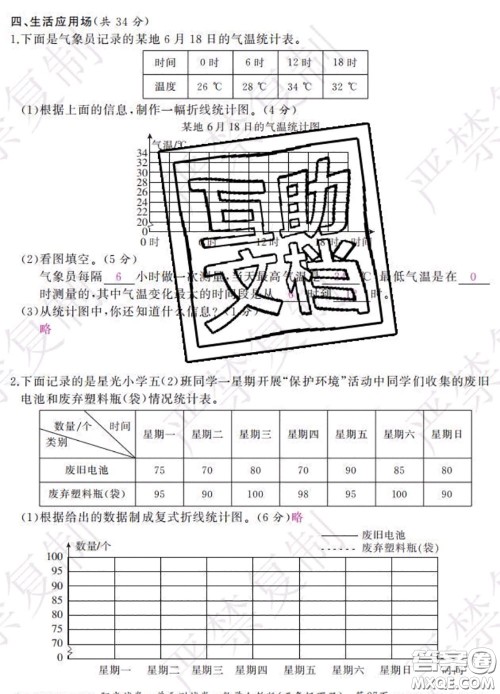 四、生活应用场(共 34 分)
1.下面是气象员记录的某地 6 月 18 日的气温统计表。
时间 0 时 6 时 12 时 18 时
温度 26 ℃ 28 ℃ 34 ℃ 32 ℃
(1)根据上面的信息,制作一幅折线统计图。(4 分)
某地 6 月 18 日的气温统计图
气温/℃
34
32
30
28
26
24
22
20
0
0 时 6 时 12 时 18 时 时间
互助
文档
(2)看图填空。(5 分)
气象员每隔 6 小时做一次测量,当天最高气温 ℃,最低气温是在 0
时测量的,其中气温变化最大的时间段是从 时到 时。
(3)从统计图中,你还知道什么信息?
略
2.下面记录的是星光小学五(2)班同学一星期开展“保护环境”活动中同学们收集的废旧
电池和废弃塑料瓶(袋)情况统计表。
数量/个 时间 类别 星期一 星期二 星期三 星期四 星期五 星期六 星期日
废旧电池 75 70 80 70 90 85 80
废弃塑料瓶(袋) 95 90 100 98 95 100 90
(1)根据给出的数据制成复式折线统计图。(6 分)略
数量/个
废旧电池
废弃塑料瓶(袋)
100
95
90
85
80
75
70
65
60
0
星期一 星期二 星期三 星期四 星期五 星期六 星期日 时间
严禁复制
答案圈